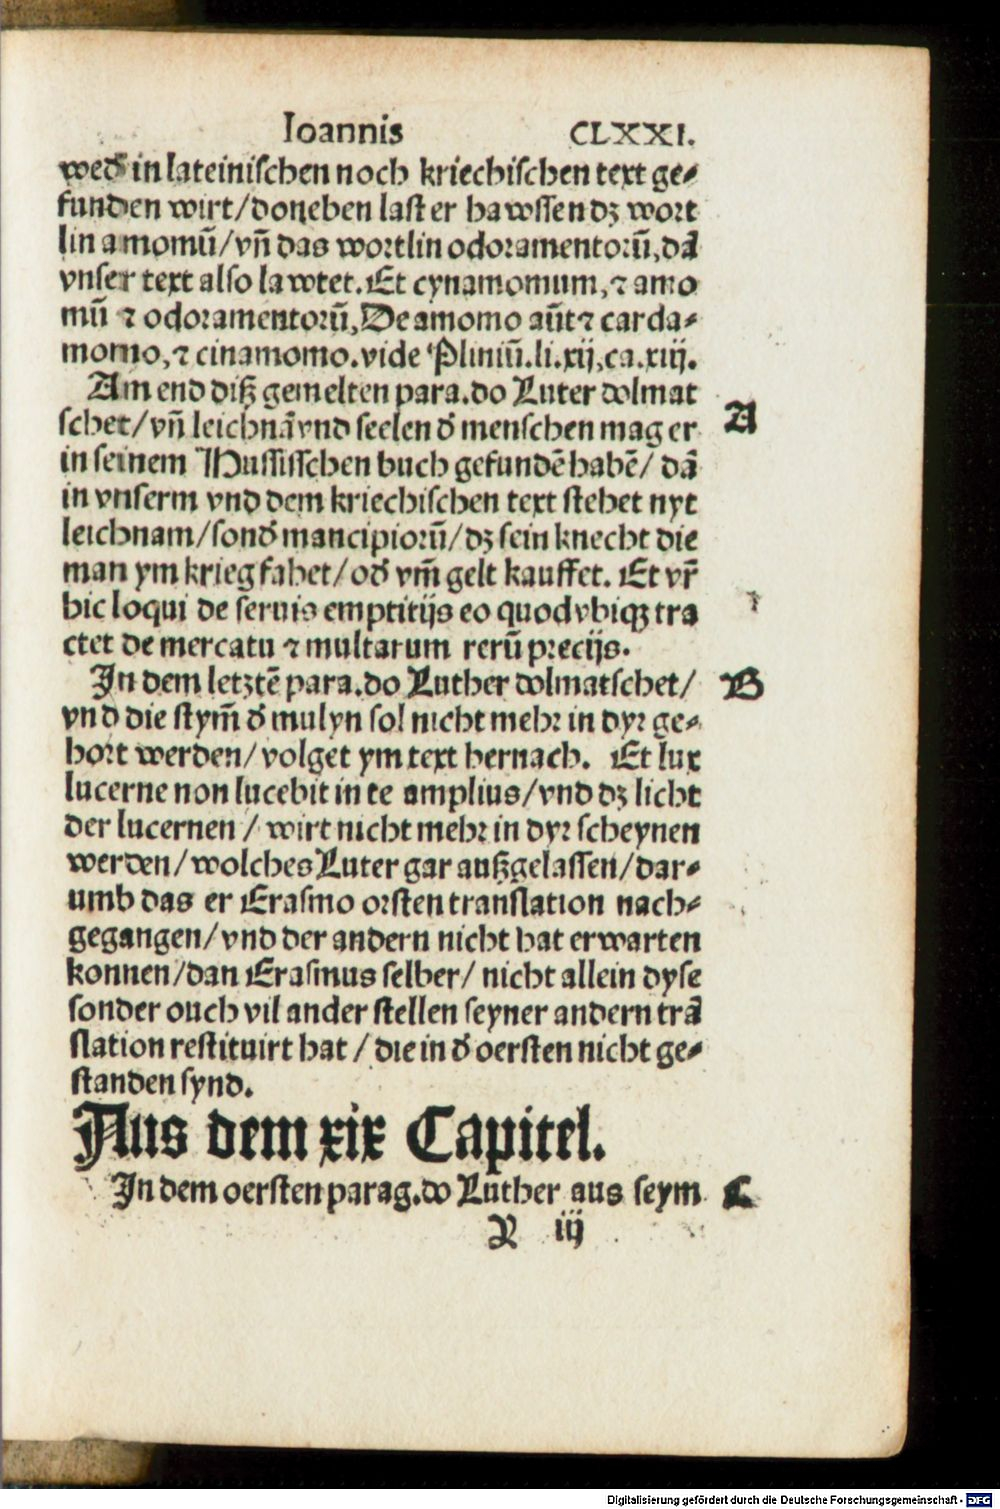 Ioannis CLXXI.
wed' in lateinischen noch kriechischen text ge-
funden wirt/doneben last er hawssen dz wort
lin amomū/vn̄ das wortlin odoramentorū, dā
vnser text also lawtet. Et cynamomum, ⁊ amo
mū ⁊ odoramentorū, De amomo aūt ⁊ carda-
momo, ⁊ cinamomo. vide Pliniū. li. xij, ca. xiij.
Am end diß gemelten para. do Luter dolmat
schet/vn̄ leichnā vnd seelen d' menschen mag er
in seinem Hussisschen buch gefundē habē/ dā
in vnserm vnd dem kriechischen text stehet nyt
leichnam/sond' mancipiorū/dz sein knecht die
man ym krieg fahet/od' vm̄ gelt kauffet. Et vr̄
hic loqui de seruis emptitijs eo quod vbiqꝫ tra
ctet de mercatu ⁊ multarum rerū precijs.
In dem letztē para. do Luther dolmatschet/
vnd die stym̄ d' mulyn sol nicht mehr in dyr ge-
hort werden/volget ym text hernach. Et lux
lucerne non lucebit in te amplius/vnd dz licht
der lucernen / wirt nicht mehr in dyr scheynen
werden/wolches Luter gar außgelassen/dar-
umb das er Erasmo orsten translation nach-
gegangen/vnd der andern nicht hat erwarten
konnen/dan Erasmus selber/ nicht allein dyse
sonder ouch vil ander stellen seyner andern trā
slation restituirt hat / die in d' oersten nicht ge-
standen synd.
Aus dem xix Capitel.
In dem oersten parag. do Luther aus seym
Y iij
A
B
C
Digitalisierung gefördert durch die Deutsche Forschungsgemeinschaft - DFG